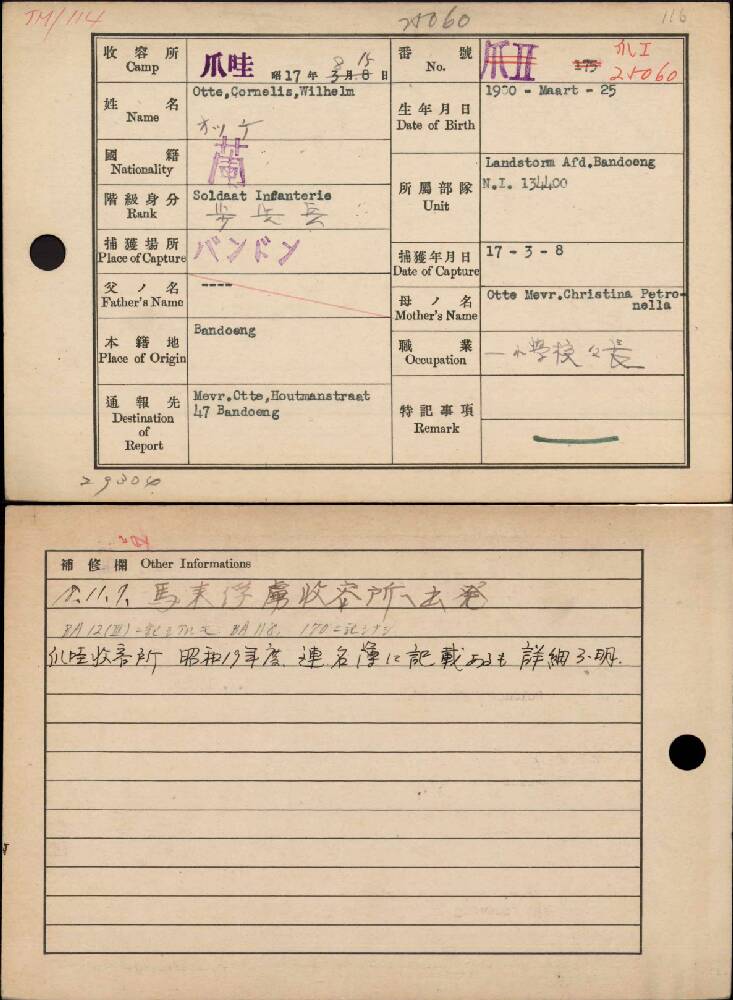 TM/114
25060
116
收容所 Camp
爪哇 昭17年3月8日
8 15
番號 No.
爪II 175
爪I 25060
姓名 Name
Otte,Cornelis,Wilhelm
オッテ
生年月日 Date of Birth
1900 - Maart - 25
國籍 Nationality
蘭
所屬部隊 Unit
Landstorm Afd.Bandoeng
N.I. 134400
階級身分 Rank
Soldaat Infanterie
捕獲場所 Place of Capture
バンドン
捕獲年月日 Date of Capture
17 - 3 - 8
父ノ名 Father's Name
----
母ノ名 Mother's Name
Otte Mevr.Christina Petro-
nella
本籍地 Place of Origin
Bandoeng
職業 Occupation
小学校々長
通報先 Destination of Report
Mevr.Otte,Houtmanstraat
47 Bandoeng
特記事項 Remark
29304
補修欄 Other Informations
18.11.7. 馬来俘虜收容所ヘ出発
爪哇收容所 昭和19年度連名簿に記載あるも詳細不明.